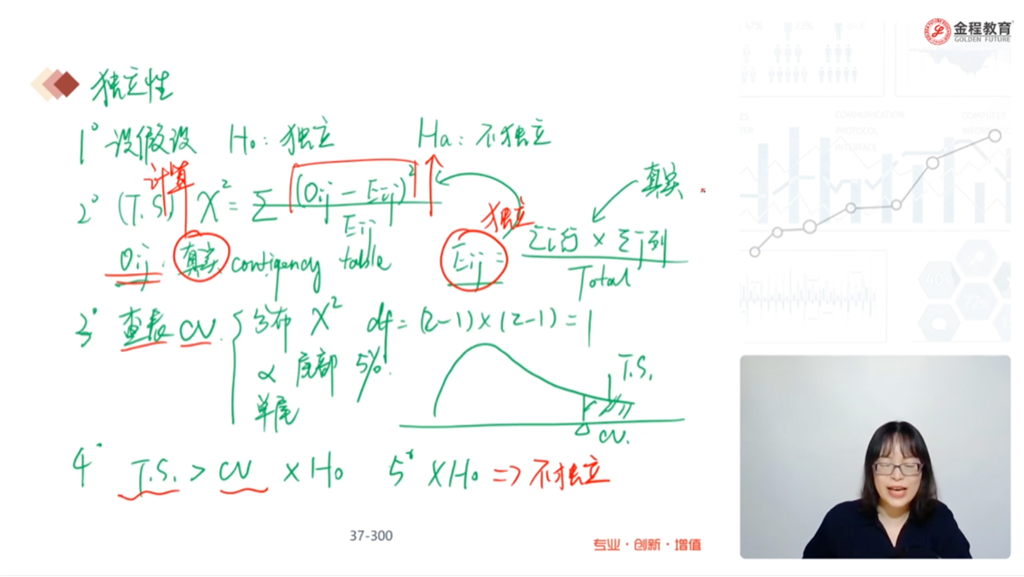 金程教育
GOLDEN FUTURE
独立性
1° 设假设 H₀: 独立 Ha: 不独立
计算
2° (T.S.) χ² = Σ (Oij − Eij)² / Eij
真实
独立
Oij: 真实 contigency table
Eij = Σi行 × Σj列 / Total
3° 查表 CV. { 分布 χ² df = (2-1)×(2-1) = 1
α 底部 5%.
单尾
T.S.
CV.
4° T.S. > CV × H₀ 5° × H₀ => 不独立
37-300
专业·创新·增值